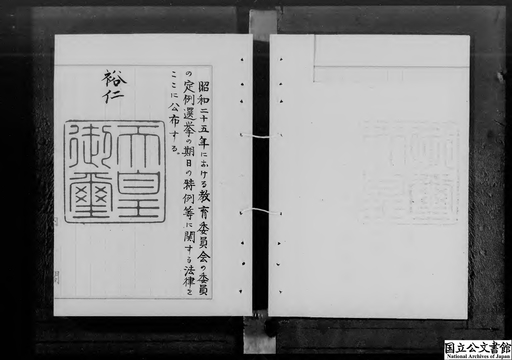 昭和二十五年における教育委員会の委員
の定例選挙の期日の特例等に関する法律を
ここに公布する。
裕仁
天皇
御璽
国立公文書館
National Archives of Japan